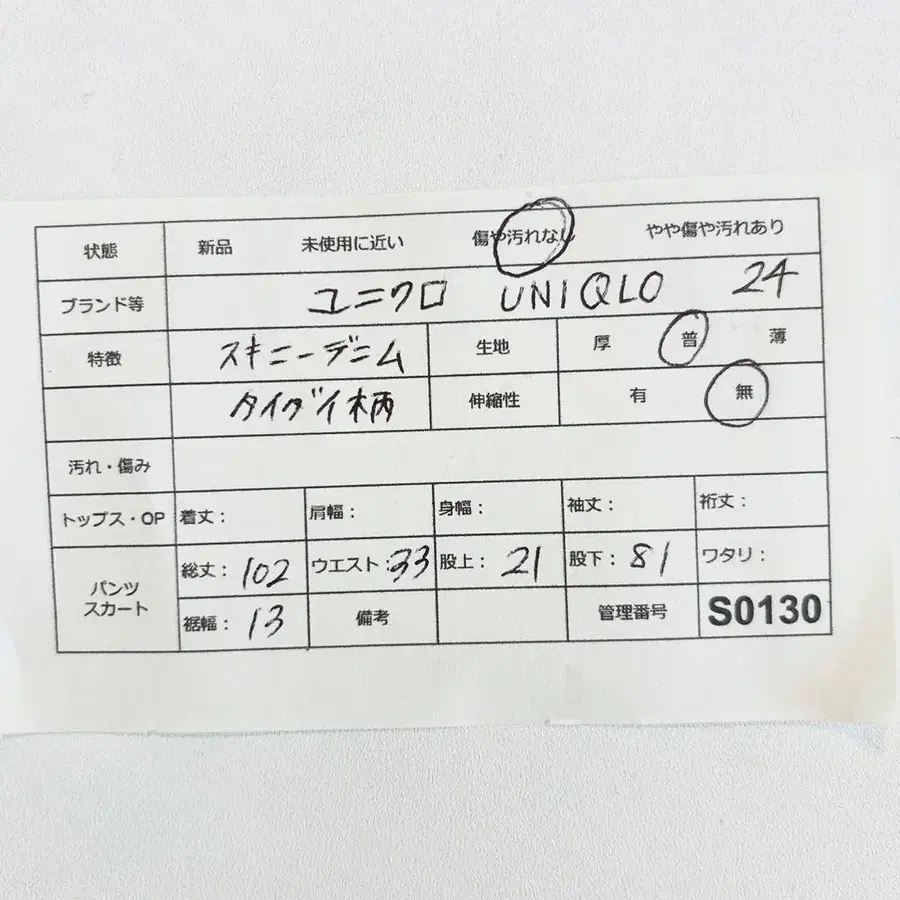 状態 新品 未使用に近い 傷や汚れなし やや傷や汚れあり
ブランド等 ユニクロ UNIQLO 24
特徴 スキニーデニム 生地 厚 普 薄
タイダイ柄 伸縮性 有 無
汚れ・傷み
トップス・OP 着丈： 肩幅： 身幅： 袖丈： 裄丈：
パンツ スカート 総丈：102 ウエスト：33 股上：21 股下：81 ワタリ：
裾幅：13 備考 管理番号 S0130